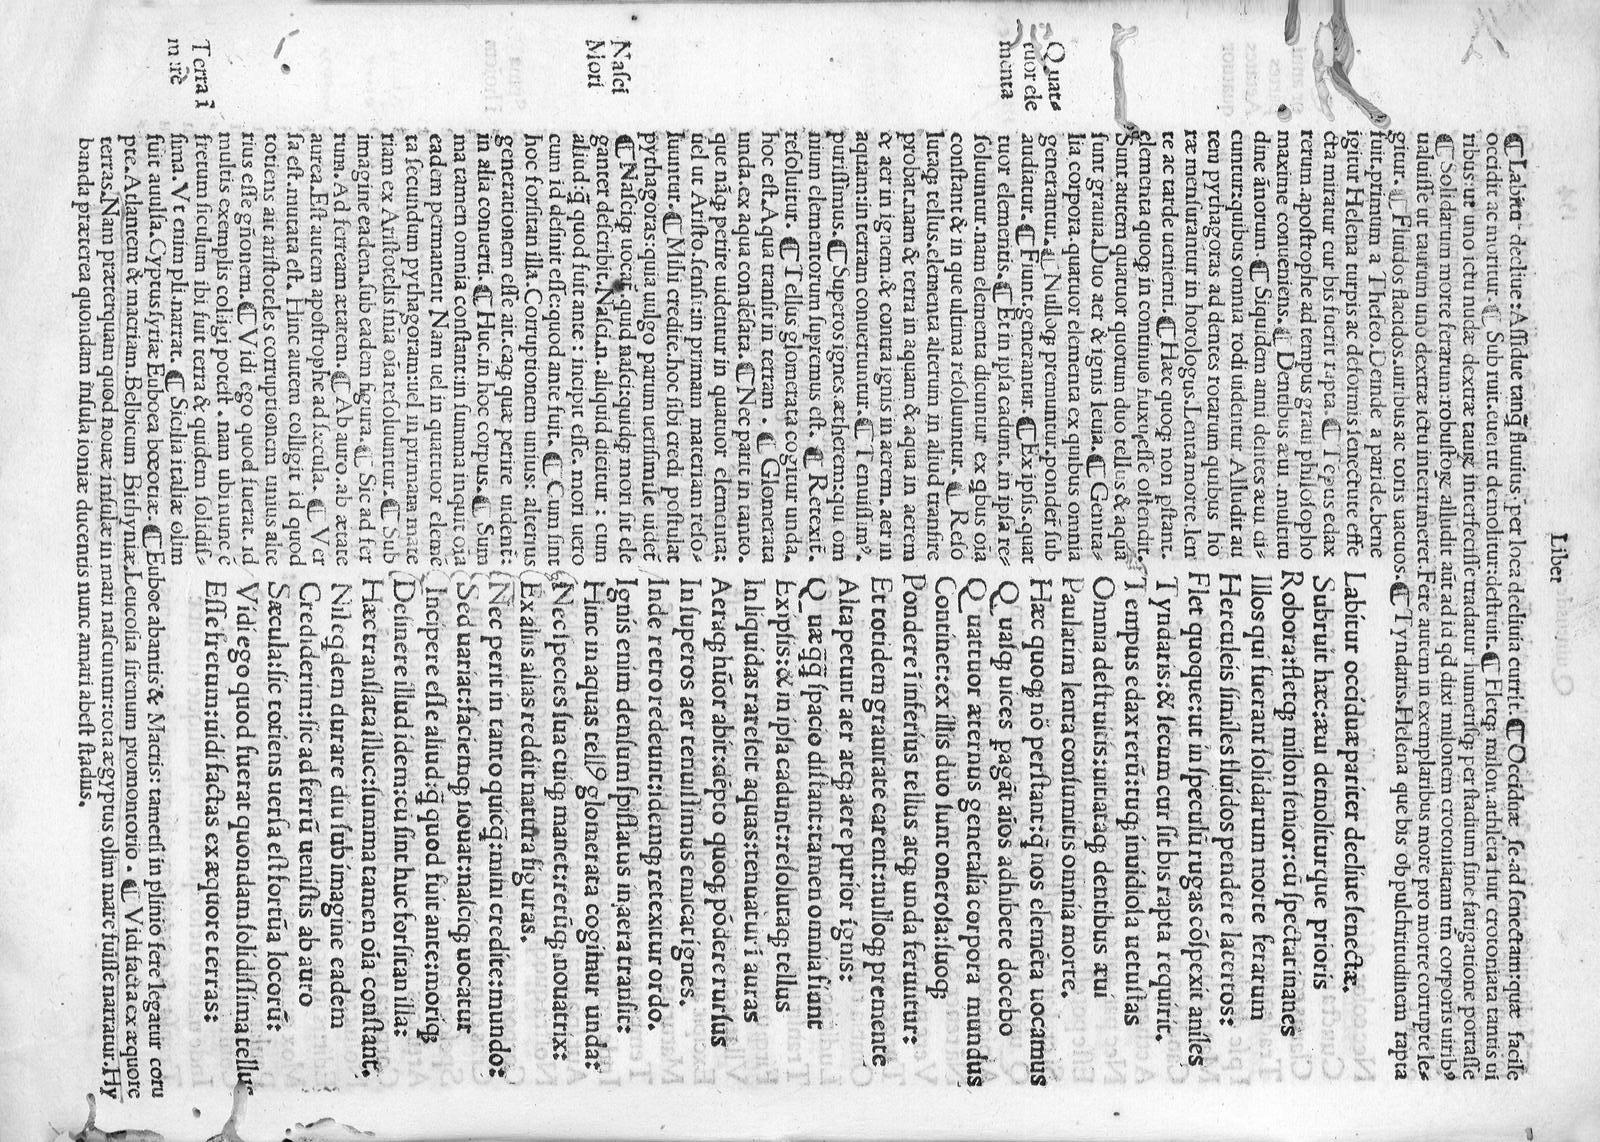 Liber
¶ Labitur decliue: Assidue tanq̃ fluuius per loca decliuia currit. ¶ Occiduæ se. ad senectam: quæ facile
occidit ac moritur. ¶ Subruit. euertit demolitur: destruit. ¶ Fletq; milon. athleta fuit crotoniata tantis ui
ribus: ut uno ictu nudæ dextræ taurũ interfecisse tradatur humerisq; per stadium sine fatigatione portasse
¶ Solidarum more ferarum robustoꝝ alludit aũt ad id qđ dixi milonem crotoniatam tm̃ corporis uirib⁹
ualuisse ut taurum uno dextræ ictu interrimeret. Fere autem in exemplaribus more pro morte corrupte le-
gitur. ¶ Fluidos flacidos. uiribus ac toris uacuos. ¶ Tyndaris. Helena que bis ob pulchritudinem rapta
fuit. primum a Theseo. Deinde a paride. bene
igitur Helena turpis ac deformis senectute esse
cta miratur cur bis fuerit rapta. ¶ Tẽpus edax
rerum. apostrophe ad tempus graui philosopho
maxime conueniens. ¶ Dentibus æui. multitu
dine ãnorum ¶ Siquidem anni dentes æui di-
cuntur: quibus omnia rodi uidentur. Alludit au
tem pythagoras ad dentes rotarum quibus ho
ræ mensurantur in horologiis. Lenta morte len
te ac tarde uenienti. ¶ Hæc quoq; non p̃stant.
elementa quoq; in continuo fluxu esse ostendit.
Sunt autem quatuor quorum duo tellus & aqua
sunt grauia. Duo aer & ignis leuia. ¶ Genita-
lia corpora. quatuor elementa ex quibus omnia
generantur. ¶ Nulloq; premuntur. ponder̃ sub
audiatur. ¶ Fiunt. generantur. ¶ Ex ipsis. quat
tuor elementis. ¶ Et in ipsa cadunt. in ipsa re-
soluuntur. nam elementa dicuntur ex qbus oĩa
constant & in que ultima resoluuntur. ¶ Resō
lutaq; tellus. elementa alterum in aliud transire
probat. nam & terra in aquam & aqua in aerem
& aer in ignem. & contra ignis in aerem. aer in
aquam: in terram conuertuntur. ¶ Tenuissim⁹.
purissimus. ¶ Superos ignes. ætherem: qui om
nium elementorum supremus est. ¶ Retexit̃.
resoluitur. ¶ Tellus glomerata cogitur unda.
hoc est. Aqua transit in terram. ¶ Glomerata
unda. ex aqua condẽsata. ¶ Nec parit in tanto.
que nãq; perire uidentur in quatuor elementa:
uel ut Aristo. sensit: in primam materiam reso-
luuntur. ¶ Mihi credite. hoc sibi credi postulat
pythagoras: quia uulgo parum uerisimile uidet̃
¶ Nasciq; uocat̃. quod nasci: quidq; mori sit ele
ganter describit. Nasci. n. aliquid dicitur: cum
aliud: q̃ quod fuit ante: incipit esse. mori uero
cum id desinit esse: quod ante fuit. ¶ Cum sint
hoc forsitan illa. Corruptionem unius: alterius
generationem esse ait. eaq; quæ perire uident̃:
in alia conuerti. ¶ Huc. in hoc corpus. ¶ Sum
ma tamen omnia constant: in summa inquit oĩa
eadem permanent Nam uel in quattuor elemẽ
ta secundum pythagoram: uel in primam mate
riam ex Aristotelis snĩa oĩa resoluuntur. ¶ Sub
imagine eadem. sub eadem figura. ¶ Sic ad fer
rum. Ad ferream ætatem. ¶ Ab auro. ab ætate
aurea. Est autem apostrophe ad sæcula. ¶ Ver
sa est. mutata est. Hinc autem colligit id quod
totiens ait aristoteles corruptionem unius alte
rius esse gñonem. ¶ Vidi ego quod fuerat. id
multis exemplis colligi potest. nam ubi nunc ẽ
fretum siculum ibi fuit terra & quidem solidis-
sima. Vt enim pli. narrat. ¶ Sicilia italiæ olim
fuit auulsa. Cyprus syriæ Euboea bœotiæ. ¶ Euboe abantis & Macris: tametsi in plinio fere legatur coru
pte. Atlantem & macriam. Belbicum Bithyniæ. Leucosia sirenum promontorio. ¶ Vidi facta ex æquore
terras. Nam præterquam quod nouæ insulæ in mari nascuntur: tota ægyptus olim mare fuisse narratur. Hy
banda præterea quondam insula ioniæ ducentis nunc a mari abest stadiis.
Labitur occiduæ pariter decliue senectæ.
Subruit hæc: æui demoliturque prioris
Robora: fletq; milon senior: cũ spectat inanes
Illos qui fuerant solidarum morte ferarum
Herculeis similes fluidos pendere lacertos:
Flet quoque: ut in speculũ rugas cõspexit aniles
Tyndaris: & secum cur sit bis rapta requirit.
Tempus edax rerũ: tuq; inuidiosa uetustas
Omnia destruitis: uitiataq; dentibus æui
Paulatim lenta consumitis omnia morte.
Hæc quoq; nõ perstant: q̃ nos elemẽta uocamus
Quasq; uices pagãt aĩos adhibete docebo
Quattuor æternus genetalia corpora mundus
Continet: ex illis duo sunt onerosa: suoq;
Pondere ĩ inferius tellus atq; unda feruntur:
Et totidem grauitate carent: nulloq; premente
Alta petunt aer atq; aere purior ignis:
Quæq̃q̃ spacio distant: tamen omnia fiunt
Ex ipsis: & in ipsa cadunt: resolutaq; tellus
In liquidas rarescit aquas: tenuatur ĩ auras
Aeraq; hũor abit: dẽpto quoq; põdere rursus
In superos aer tenuissimus emicat ignes.
Inde retro redeunt: idemq; retexitur ordo.
Ignis enim densum spissatus in aera transit:
Hinc in aquas tell⁹ glomerata cogitur unda:
Nec species sua cuiq; manet: rerũq; nouatrix:
Ex aliis alias reddit natura figuras.
Nec perit in tanto quicq̃: mihi credite: mundo:
Sed uariat: faciemq; nouat: nasciq; uocatur
Incipere esse aliud: q̃ quod fuit ante: moriq;
Desinere illud idem: cũ sint huc forsitan illa:
Hæc translata illuc: summa tamen oĩa constant.
Nil eqdem durare diu sub imagine eadem
Crediderim: sic ad ferrũ uenistis ab auro
Sæcula: sic totiens uersa est fortũa locorũ:
Vidi ego quod fuerat quondam solidissima tellus
Esse fretum: uidi factas ex æquore terras:
Quat-
tuor ele
menta
Nasci
Mori
Terra ĩ
marẽ